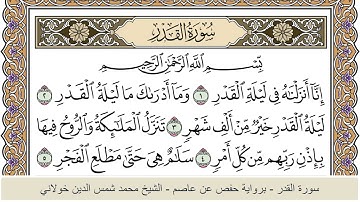 سُورَةُ الْقَدْرِ
بِسْمِ اللَّهِ الرَّحْمَٰنِ الرَّحِيمِ
إِنَّا أَنزَلْنَاهُ فِي لَيْلَةِ الْقَدْرِ ١ وَمَا أَدْرَاكَ مَا لَيْلَةُ الْقَدْرِ ٢
لَيْلَةُ الْقَدْرِ خَيْرٌ مِّنْ أَلْفِ شَهْرٍ ٣ تَنَزَّلُ الْمَلَائِكَةُ وَالرُّوحُ فِيهَا
بِإِذْنِ رَبِّهِم مِّن كُلِّ أَمْرٍ ٤ سَلَامٌ هِيَ حَتَّىٰ مَطْلَعِ الْفَجْرِ ٥
سورة القدر - برواية حفص عن عاصم - الشيخ محمد شمس الدين خولاني